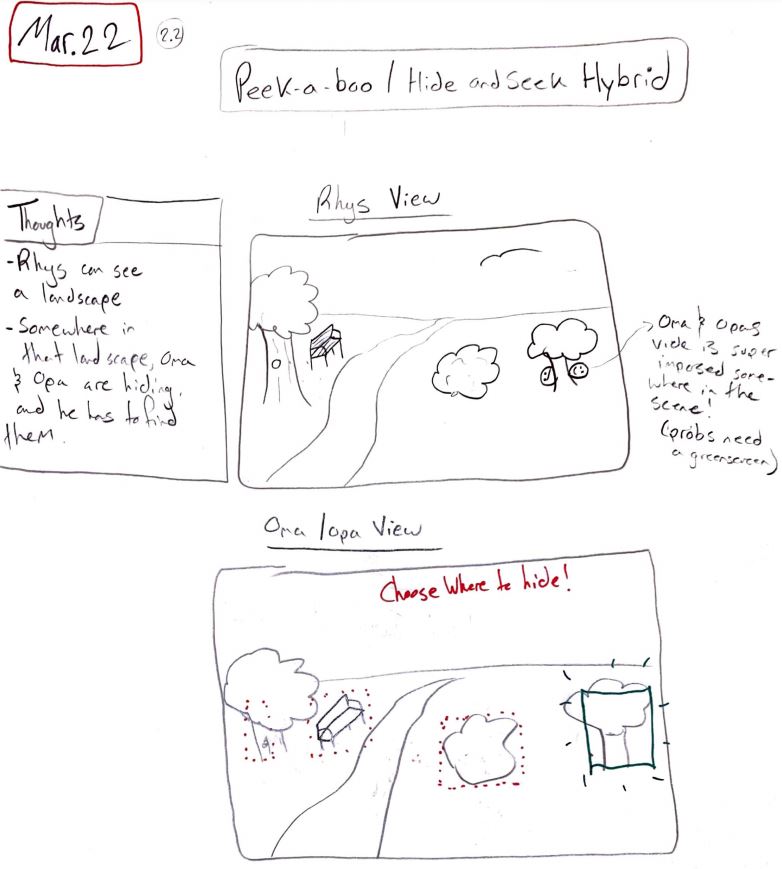 Mar. 22
2.2
Peek-a-boo / Hide and Seek Hybrid
Thoughts
- Rhys can see
a landscape
- Somewhere in
that landscape, Oma
& Opa are hiding,
and he has to find
them.
Rhys View
Oma & Opas
vide is super
imposed some-
where in the
scene!
(probs need
a greenscreen)
Oma/opa View
Choose Where to hide!